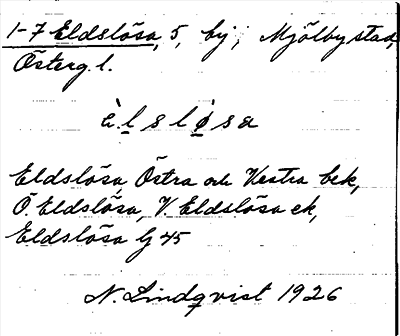 1-7 Eldslösa, 5, by; Mjölby stad,
Österg. l.
èlsløsa
Eldslösa, Östra och Vestra bek,
Ö. Eldslösa, V. Eldslösa ek,
Eldslösa G 45
N. Lindqvist 1926